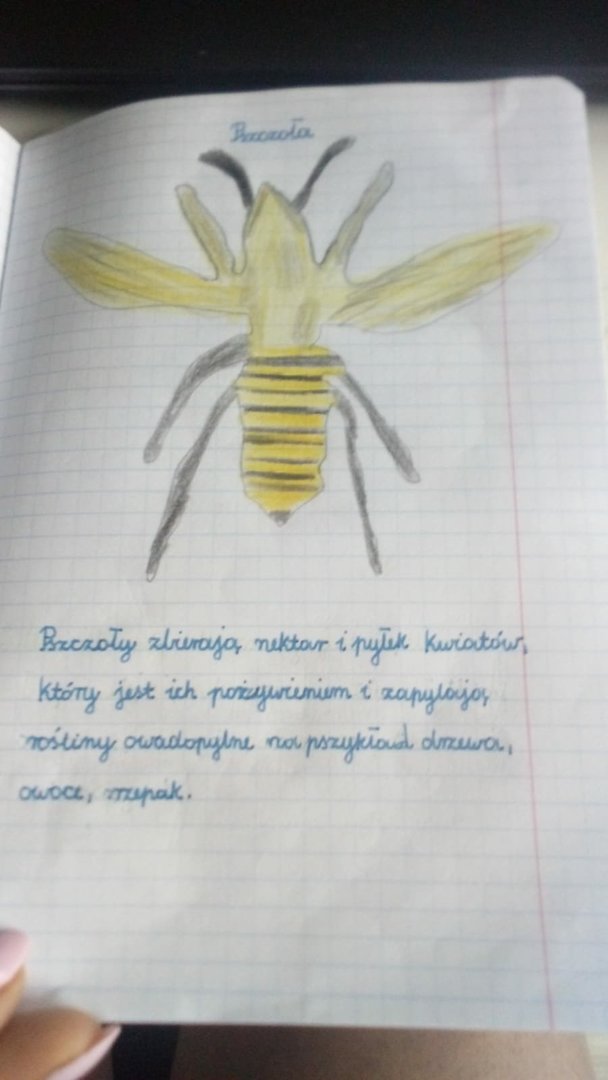 Pszczoła
Pszczoły zbierają nektar i pyłek kwiatów,
który jest ich pożywieniem i zapylają,
rośliny owadopylne na pszykład drzewa,
owoce, rzepak.